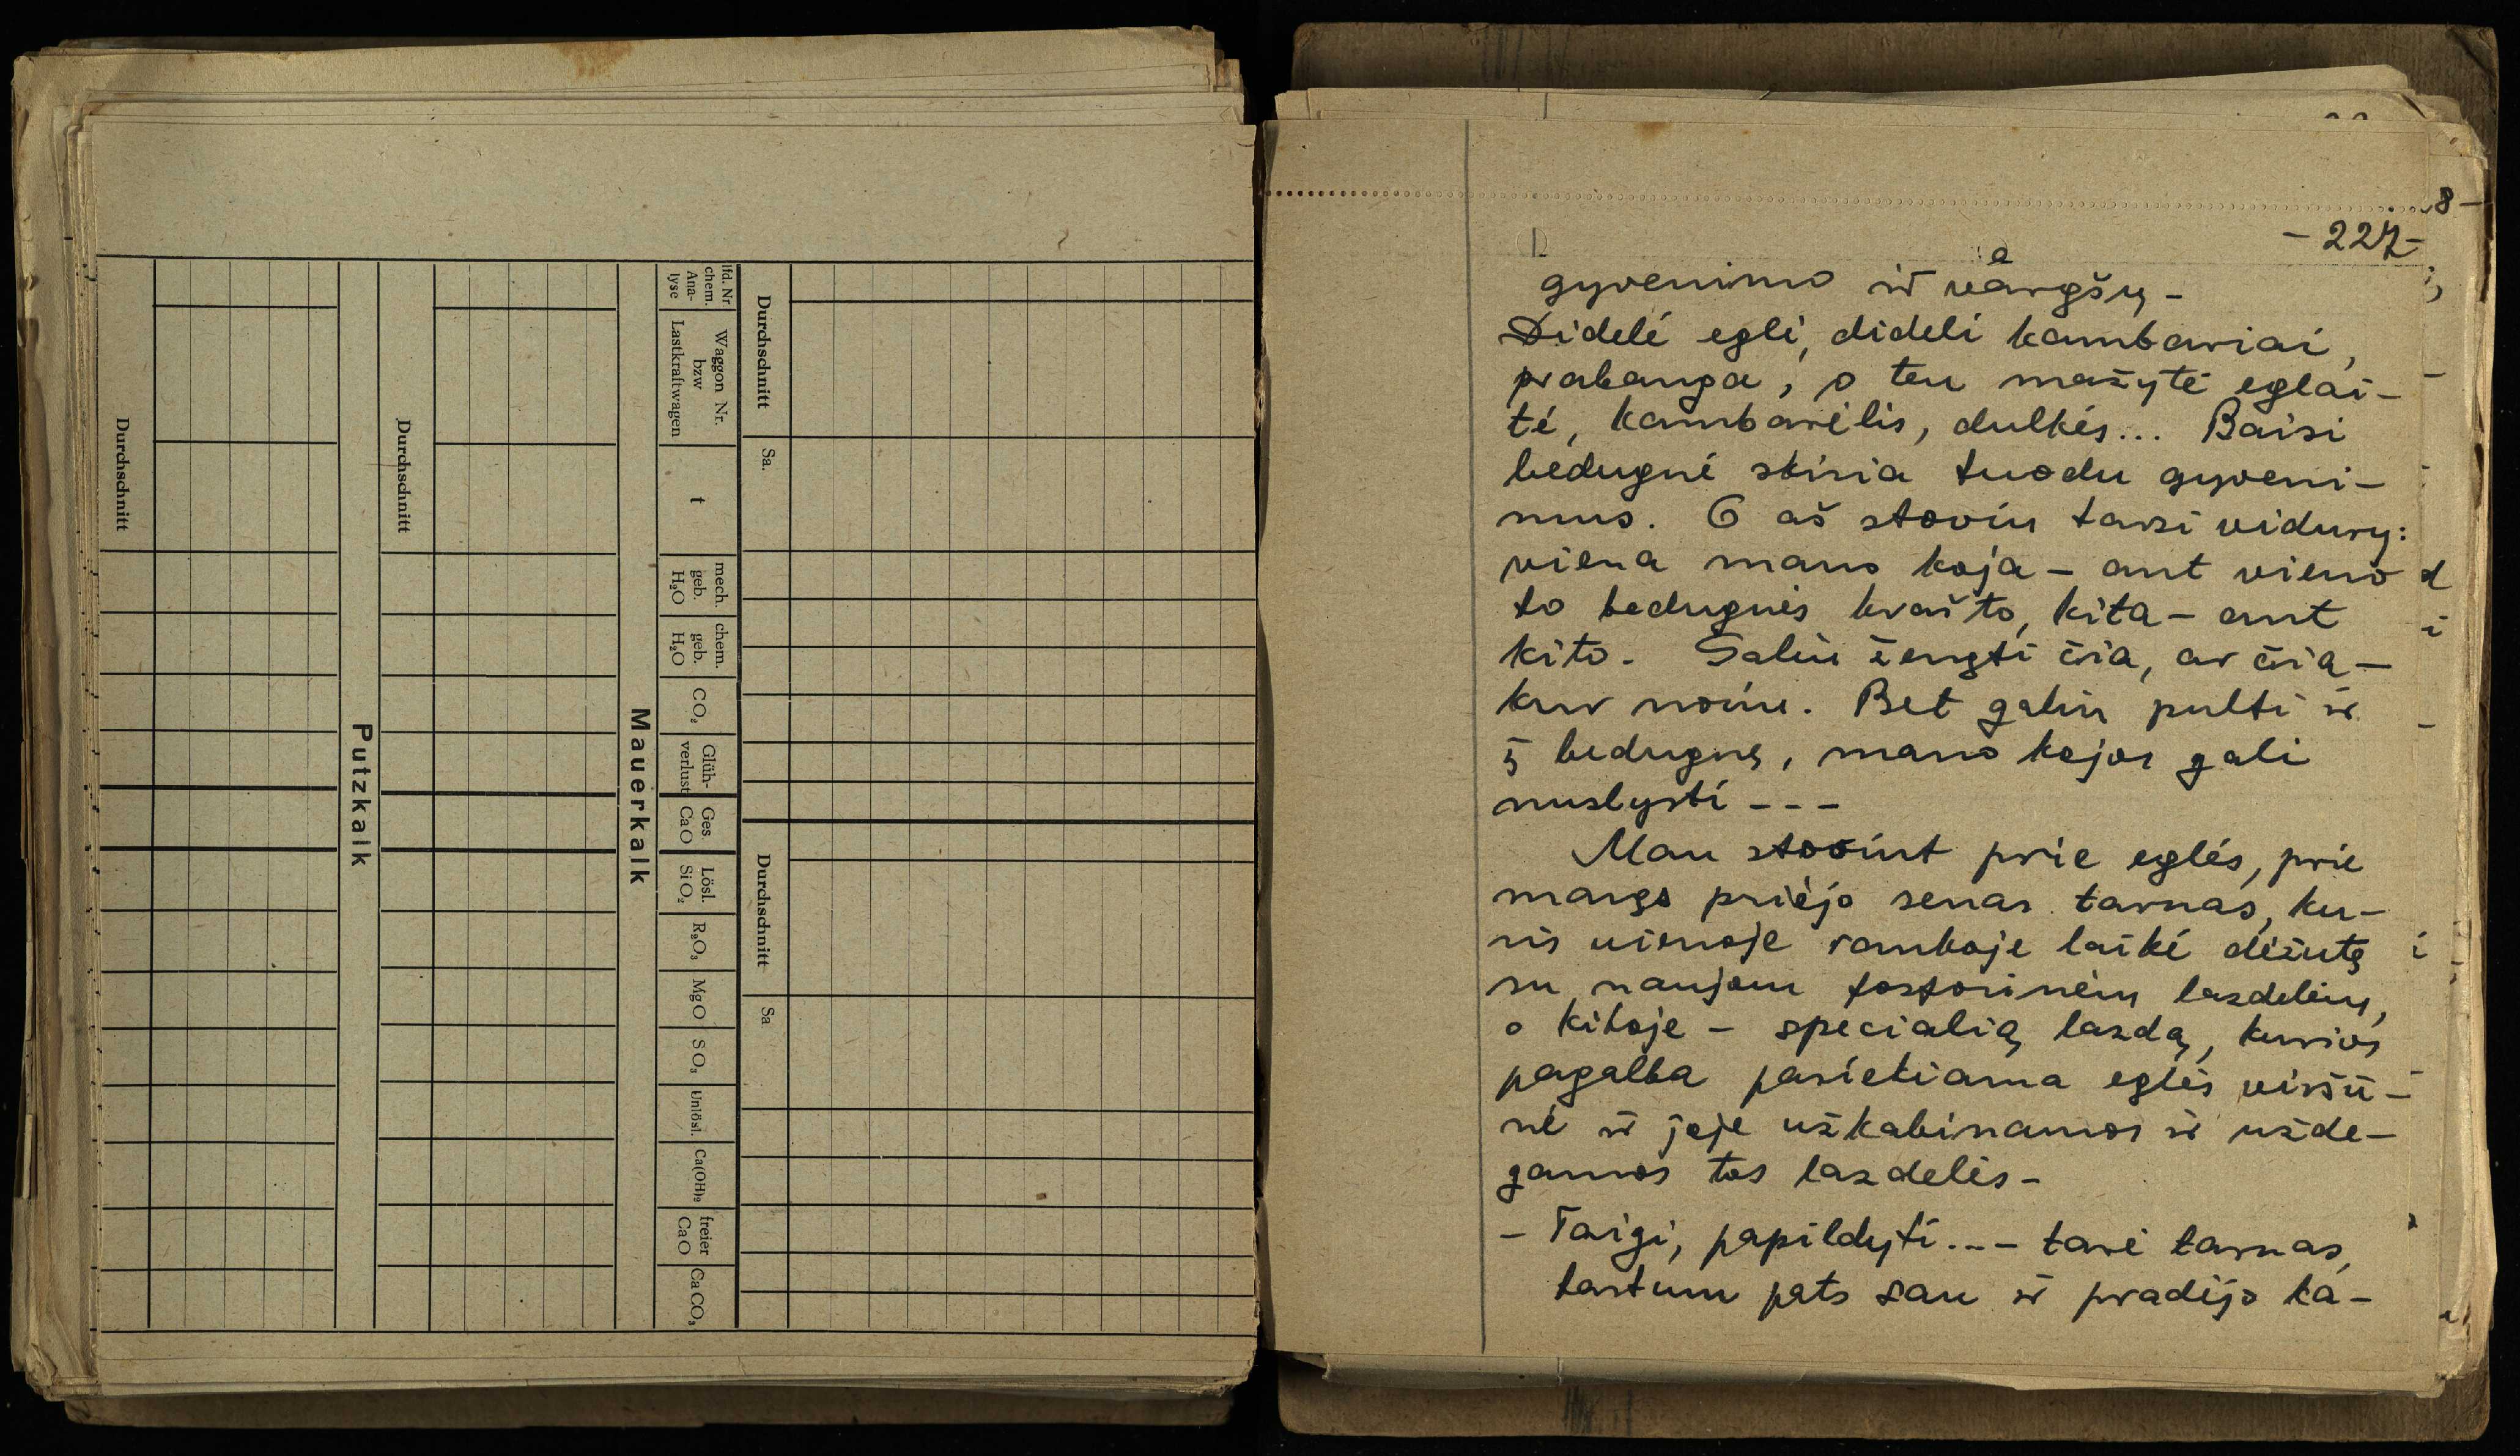 Durchschnitt
Putzkalk
Durchschnitt
Mauerkalk
lfd. Nr.
chem.
Ana-
lyse
Waggon Nr.
bzw
Lastkraftwagen
t
mech.
geb.
H₂O
chem.
geb.
H₂O
CO₂
Glüh-
verlust
Ges
CaO
Lösl.
SiO₂
R₂O₃
MgO
SO₃
Unlösl.
Ca(OH)₂
freier
CaO
CaCO₃
Durchschnitt
Sa.
Durchschnitt
Sa
8 –
– 227 –
gyvenimo ir vargšų –
Didelė eglė, dideli kambariai,
prabanga, o ten mažytė eglai-
tė, kambarėlis, dulkės... Baisi
bedugnė skiria tuodu gyveni-
mus. O aš stoviu tarsi vidury:
viena mano koja – ant vieno
to bedugnės krašto, kita – ant
kito. Galiu žengti čia, ar čia –
kur noriu. Bet galiu pulti ir
į bedugnę, mano kojos gali
nuslysti – – –
Man stovint prie eglės, prie
manęs priėjo senas tarnas, ku-
ris vienoje rankoje laikė dėžutę
su naujom fosforinėm lazdelėm,
o kitoje – specialią lazdą, kurios
pagalba pasiekiama eglės viršū-
nė ir joje užkabinamos ir užde-
gamos tos lazdelės –
– Taigi, papildyti... – tarė tarnas,
tartum pats sau ir pradėjo ka-